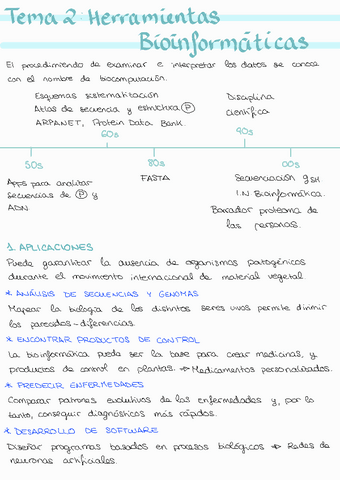 Tema 2: Herramientas
Bioinformáticas
El procedimiendo de examinar e interpretar los datos se conoce
con el nombre de biocomputación.
Esquemas sistematización
Atlas de secuencia y estructura Ⓟ
ARPANET, Protein Data Bank.
60s
Disciplina
científica
90s
50s
Apps para analizar
secuencias de Ⓟ y
ADN
80s
FASTA
00s
Secuenciación gSH
I.N Bioinformática.
Borrador proteoma de
las personas.
1. APLICACIONES
Puede garantizar la ausencia de organismos patogénicos
durante el movimiento internacional de material vegetal
* ANÁLISIS DE SECUENCIAS Y GENOMAS
Mapear la biología de los distintos seres vivos permite dirimir
los parecidos-diferencias.
* ENCONTRAR PRODUCTOS DE CONTROL
La bioinformática puede ser la base para crear medicinas, y
productos de control en plantas. ⇒ Medicamentos personalizados.
* PREDECIR ENFERMEDADES
Comparar patrones evolutivos de las enfermedades y, por lo
tanto, conseguir diagnósticos más rápidos.
* DESARROLLO DE SOFTWARE
Diseñar programas basados en procesos biológicos ⇒ Redes de
neuronas artificiales.